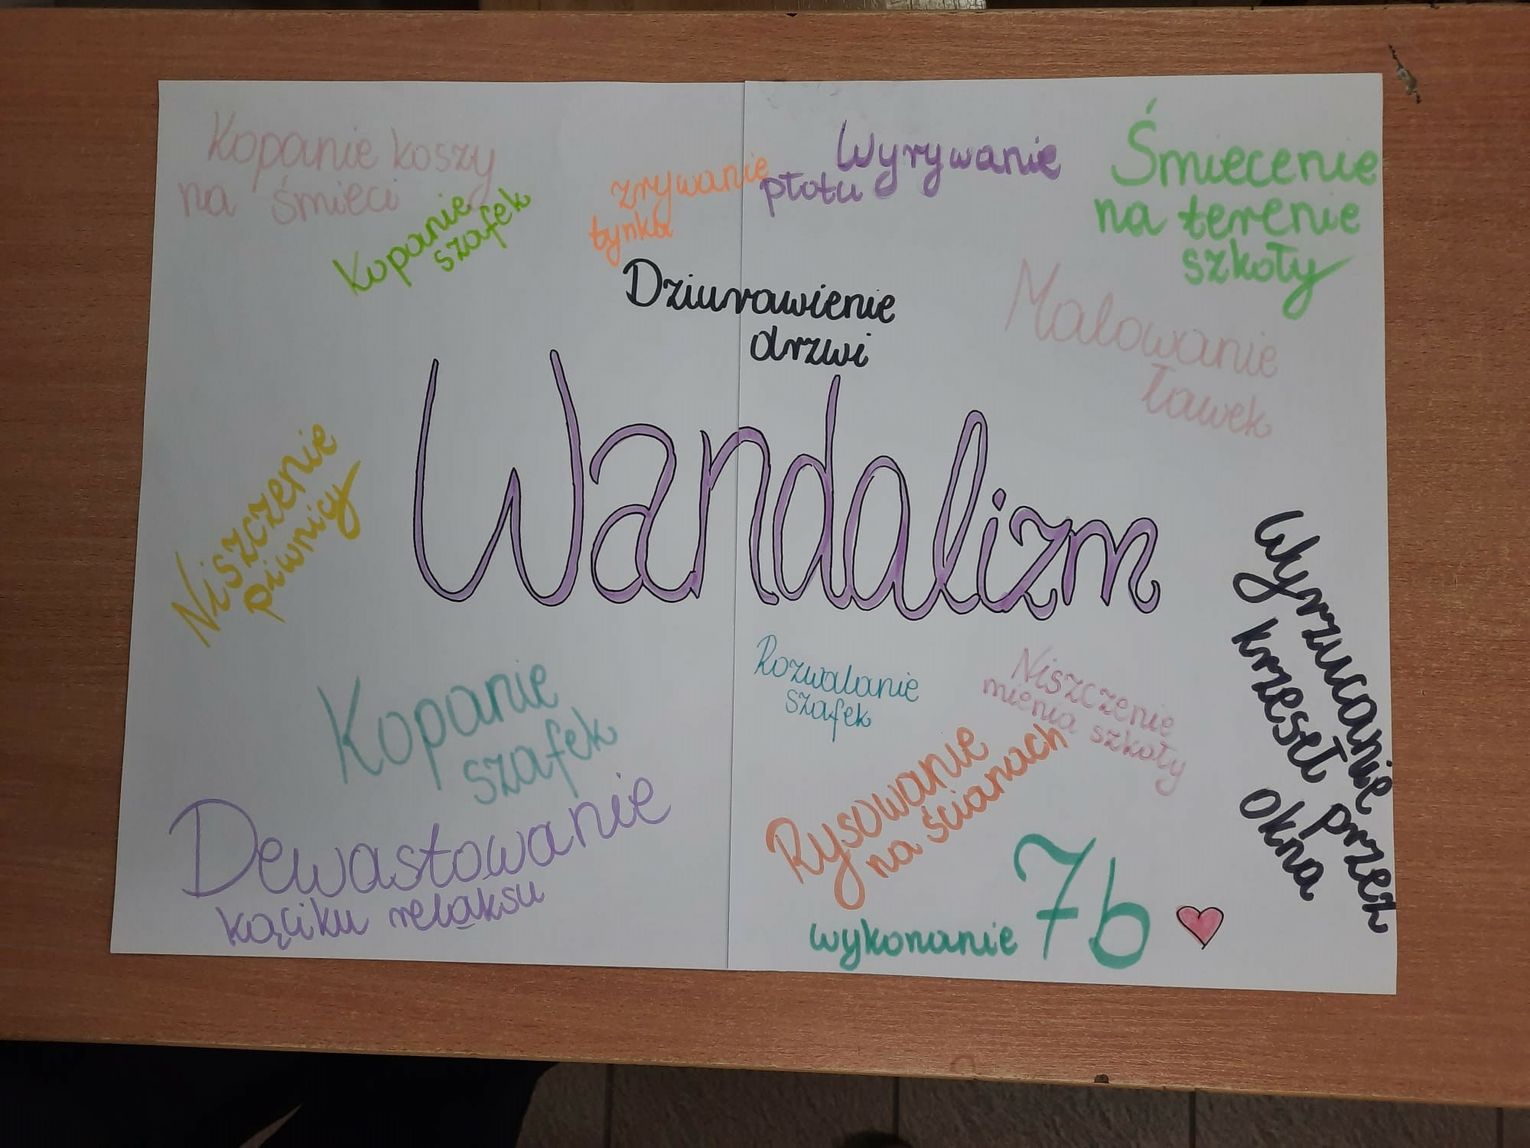 Kopanie koszy
na śmieci
Kopanie
szafek
zrywanie
tynku
Wyrywanie
płotu
Śmiecenie
na terenie
szkoły
Dziurawienie
drzwi
Malowanie
ławek
Wandalizm
Niszczenie
piwnicy
Wyrzucanie
krzeseł przez
okna
Kopanie
szafek
Rozwalanie
szafek
Niszczenie
mienia szkoły
Dewastowanie
kąciku relaksu
Rysowanie
na ścianach
wykonanie 7b